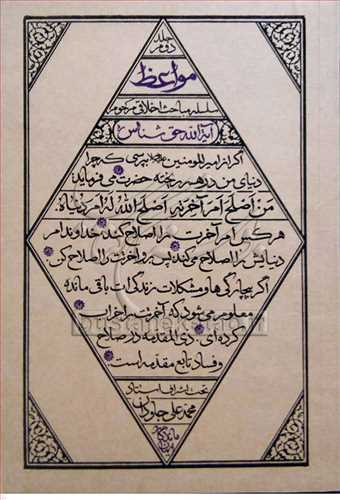 جلد
دوم
مواعظ
سلسله مباحث اخلاقی مرحوم
آیة الله حق شناس
اگر از امیرالمومنین بپرسی که چرا
دنیای من در هم ریخته حضرت می فرماید:
مَن اَصلَحَ اَمرَ آخرتِهِ اَصلَحَ اللهُ لَهُ اَمرَ دُنیاهُ.
هر کس امر آخرتش را اصلاح کند، خداوند امر
دنیایش را اصلاح می کند پس برو آخرتت را اصلاح کن.
اگر بیچارگی ها و مشکلات زندگی ات باقی مانده
معلوم می شود که آخرتت را خراب
کرده ای. ذی المقدمه در صلاح
و فساد تابع مقدمه است.
تحت اشراف استاد
محمدعلی جاودان